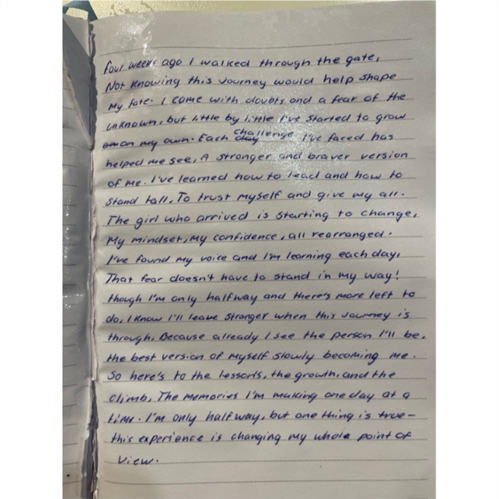 four weeks ago I walked through the gate,
Not knowing this journey would help shape
My fate. I came with doubts and a fear of the
unknown, but little by little I've started to grow
on my own. Each challenge I've faced has
helped me see, A stronger and braver version
of me. I've learned how to lead and how to
stand tall, To trust myself and give my all.
The girl who arrived is starting to change,
My mindset, my confidence, all rearranged.
I've found my voice and I'm learning each day,
That fear doesn't have to stand in my way!
though I'm only halfway and there's more left to
do, I know I'll leave stronger when this journey is
through. Because already I see the person I'll be,
the best version of myself slowly becoming me.
So here's to the lessons, the growth, and the
climb, The memories I'm making one day at a
time. I'm only halfway, but one thing is true-
this experience is changing my whole point of
view.